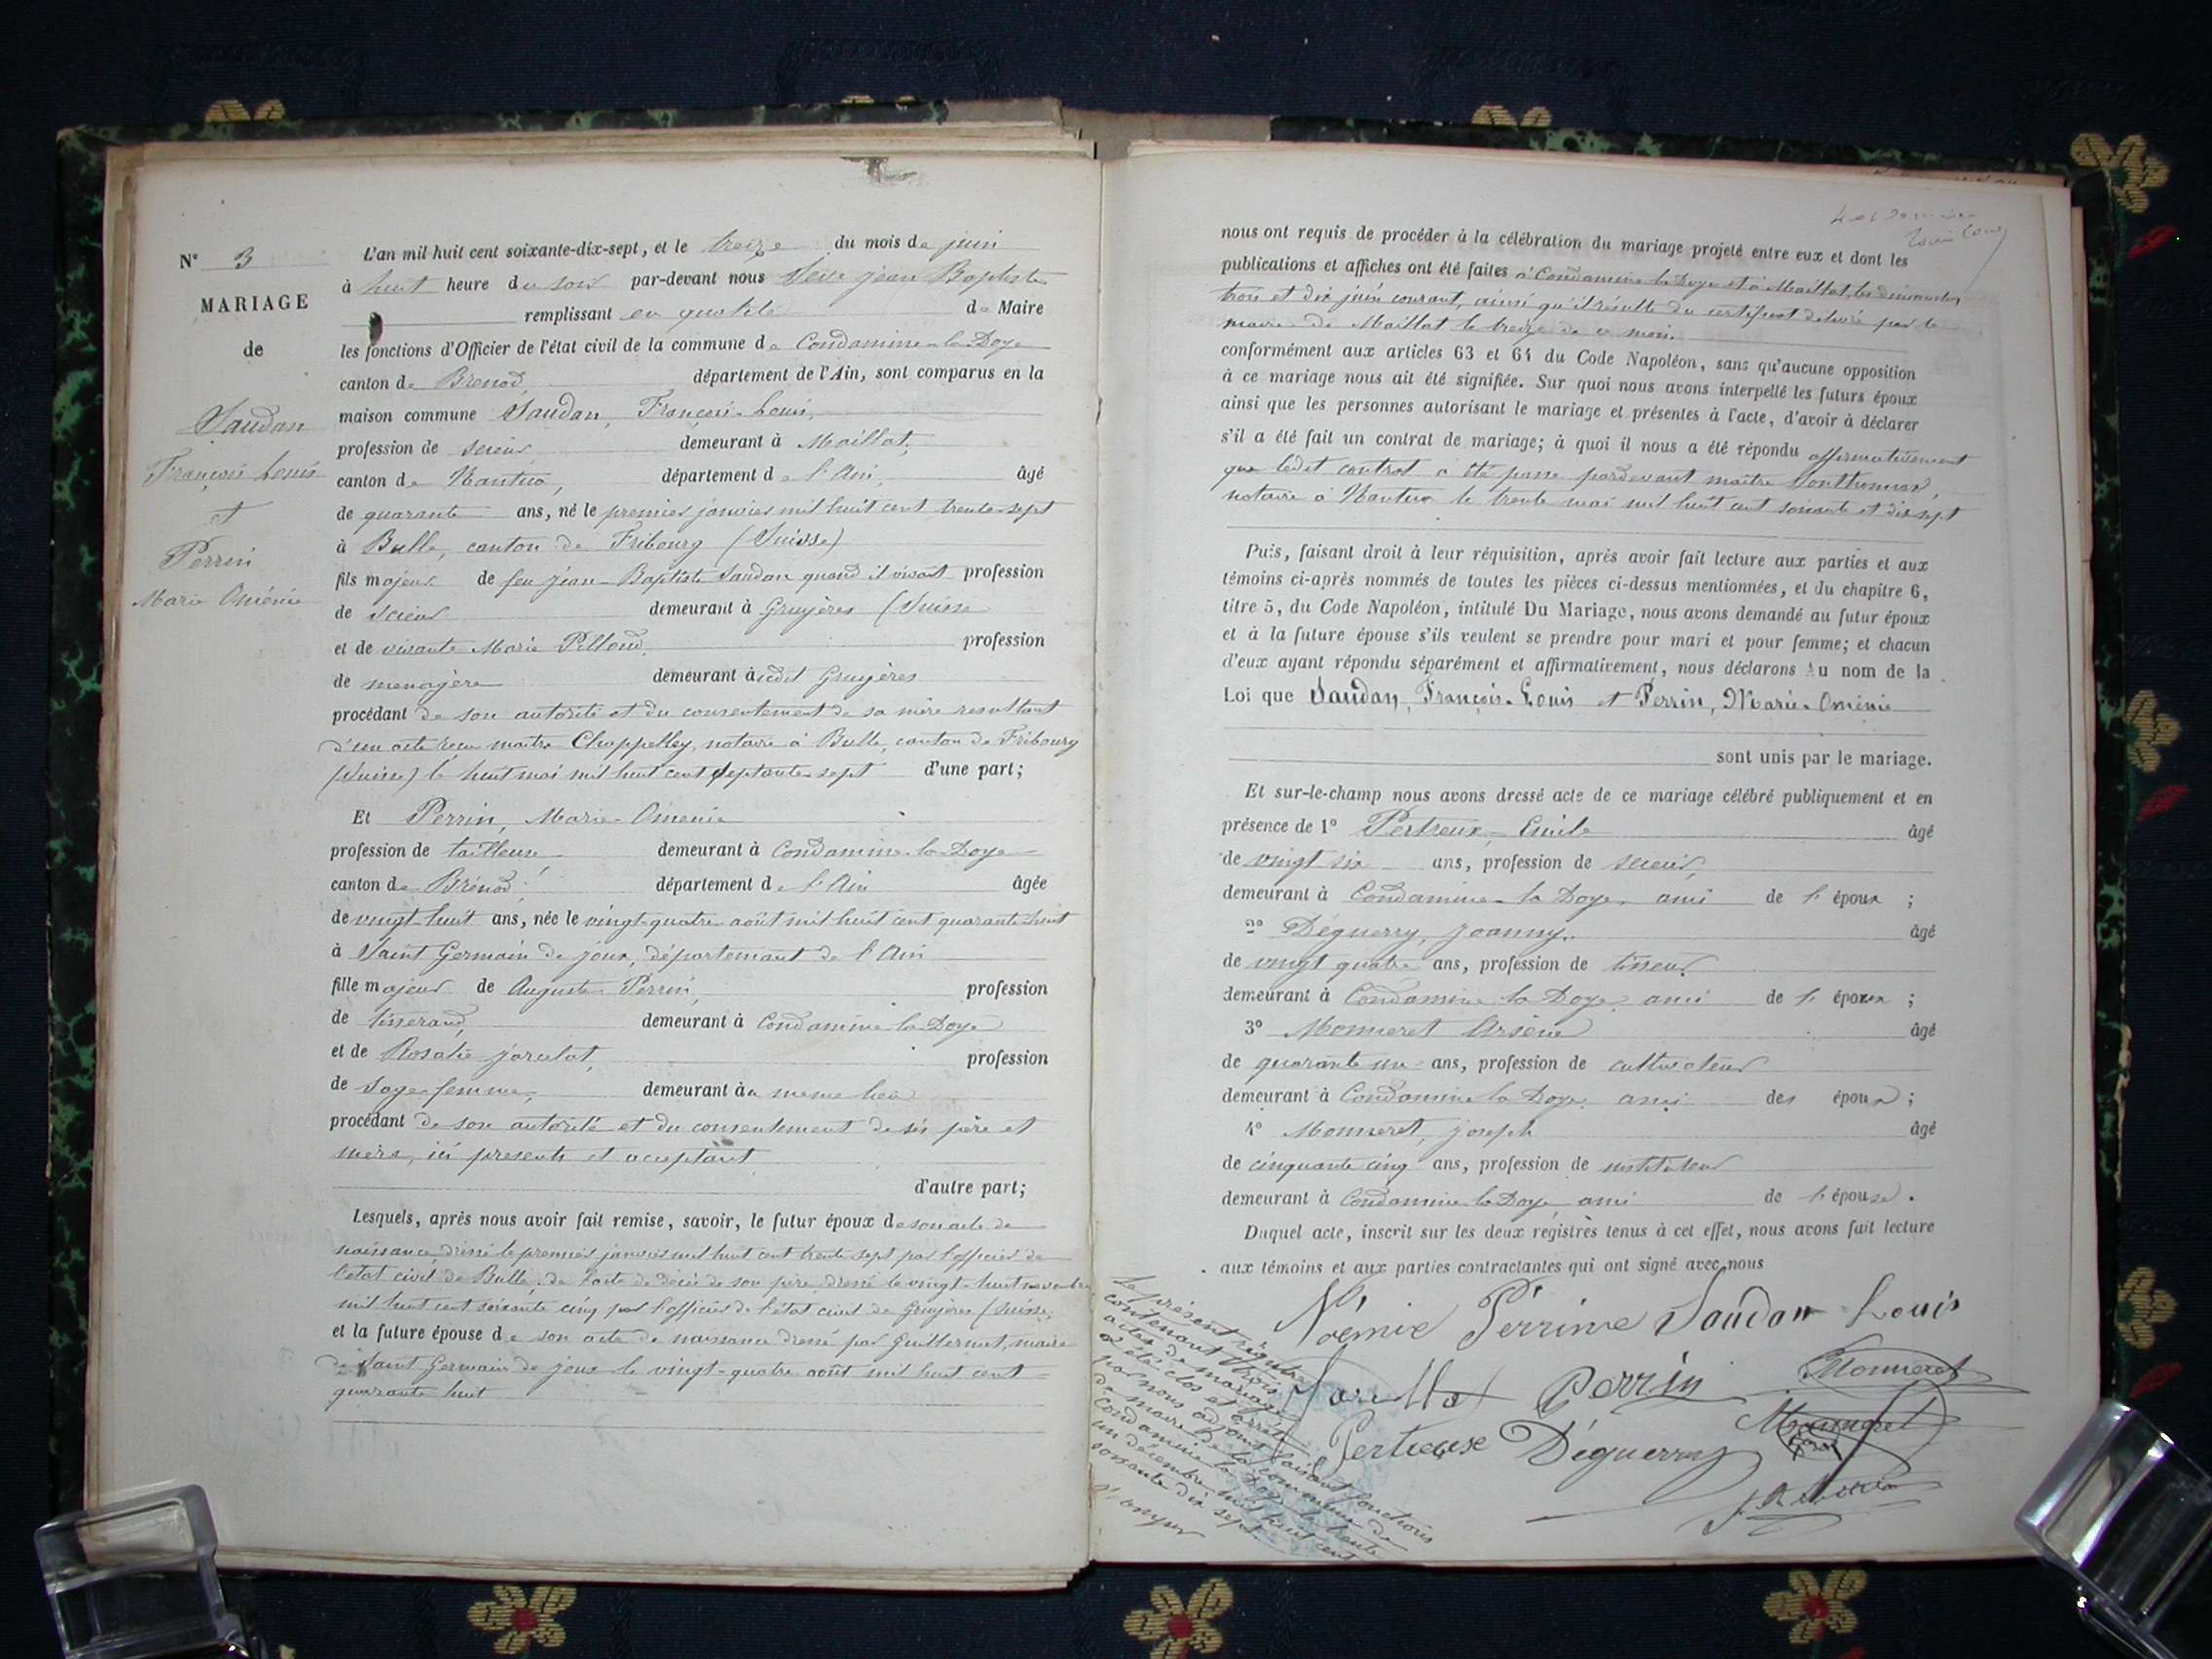 N° 3
MARIAGE
de
Saudan
François Louis
et
Perrin
Marie Oménie
L'an mil huit cent soixante-dix-sept, et le treize du mois de juin
à huit heure du soir par-devant nous jean Baptiste
remplissant en qualité de Maire
les fonctions d'Officier de l'état civil de la commune de Condamine-la-Doye
canton de Brenod département de l'Ain, sont comparus en la
maison commune Saudan, François-Louis,
profession de scieur demeurant à Maillat,
canton de Nantua, département de l'Ain, âgé
de quarante ans, né le premier janvier mil huit cent trente-sept
à Bulle, canton de Fribourg (Suisse)
fils majeur de feu jean-Baptiste Saudan quand il vivait profession
de scieur demeurant à Gruyères (Suisse
et de vivante Marie Pilloud, profession
de menagère demeurant àudit Gruyères
procédant de son autorité et du consentement de sa mère resultant
d'un acte recu maître Chappelley, notaire à Bulle, canton de Fribourg
(Suisse) le huit mai mil huit cent septante-sept d'une part;
Et Perrin, Marie-Oménie
profession de tailleuse demeurant à Condamine-la-Doye
canton de Brénod, département de l'Ain âgée
de vingt-huit ans, née le vingt-quatre août mil huit cent quarante-huit
à Saint Germain de joux, département de l'Ain
fille majeur de Auguste Perrin, profession
de tisserand, demeurant à Condamine la Doye
et de Rosalie jarulat, profession
de Sage-femme, demeurant àu meme lieu
procédant de son autorité et du consentement de ses père et
mère, ici presents et acceptant
d'autre part;
Lesquels, après nous avoir fait remise, savoir, le futur époux de son acte de
naissance, dressé le premier janvier mil huit cent trente sept par l'officier de
l'état civil de Bulle, de l'acte de décès de son père dressé le vingt-huit novembre
mil huit cent soixante cinq par l'officier de l'état civil de Gruyères (Suisse,
et la future épouse de son acte de naissance dressé par Guillermet, maire
de Saint Germain de joux le vingt-quatre août mil huit cent
quarante huit
nous ont requis de procéder à la célébration du mariage projeté entre eux et dont les
publications et affiches ont été faites à Condamine la Doye et à Maillat, les dimanches
trois et dix juin courant, ainsi qu'il résulte du certificat delivré par le
maire de Maillat le treize de ce mois.
conformément aux articles 63 et 64 du Code Napoléon, sans qu'aucune opposition
à ce mariage nous ait été signifiée. Sur quoi nous avons interpellé les futurs époux
ainsi que les personnes autorisant le mariage et présentes à l'acte, d'avoir à déclarer
s'il a été fait un contrat de mariage; à quoi il nous a été répondu affirmativement
que ledit contrat a été passé pardevant maître Ponthonnard,
notaire à Nantua le trente mai mil huit cent soixante et dix sept
Puis, faisant droit à leur réquisition, après avoir fait lecture aux parties et aux
témoins ci-après nommés de toutes les pièces ci-dessus mentionnées, et du chapitre 6,
titre 5, du Code Napoléon, intitulé Du Mariage, nous avons demandé au futur époux
et à la future épouse s'ils veulent se prendre pour mari et pour femme; et chacun
d'eux ayant répondu séparément et affirmativement, nous déclarons Au nom de la
Loi que Saudan, François-Louis et Perrin, Marie-Oménie
sont unis par le mariage.
Et sur-le-champ nous avons dressé acte de ce mariage célébré publiquement et en
présence de 1° Pertreux, Emile âgé
de vingt six ans, profession de scieur,
demeurant à Condamine-la Doye, ami de l'époux ;
2° Déguerry, joanny. âgé
de vingt quatre ans, profession de tisseur
demeurant à Condamine la Doye, ami de l'époux ;
3° Monneret Arsène âgé
de quarante un ans, profession de cultivateur
demeurant à Condamine la Doye, ami des époux ;
4° Monneret, joseph âgé
de cinquante cinq ans, profession de instituteur
demeurant à Condamine la Doye, ami de l'épouse.
Duquel acte, inscrit sur les deux régistres tenus à cet effet, nous avons fait lecture
aux témoins et aux parties contractantes qui ont signé avec nous
Noémie Perrine Saudan Louis
Jarullat Perrin Monneret
Pertreuxe Déguerry Monneret
Le présent régistre
contenant trois
actes de mariage
a été clos et arrêté
par nous adjoint faisant fonctions
de maire de la commune de
Condamine la Doye le trente
un décembre mil huit cent
soixante dix sept